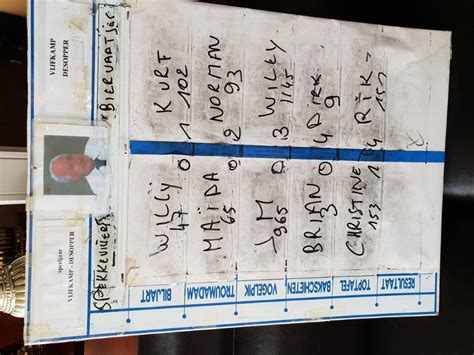 VIJFKAMP
DESOPPER
speeljaar
VIJFKAMP - DESOPPER
BILJART
WILLY 0 1 KURT
47 102
TROUMADAM
MAÏDA 0 2 NORMAN
65 93
VOGELPIK
JM 0 3 WILLY
965 1145
BAKSCHIETEN
BRIAN 0 4 DIRK
3 9
TOPTAFEL
CHRISTINE 1 4 RIK
153 151
RESULTAAT